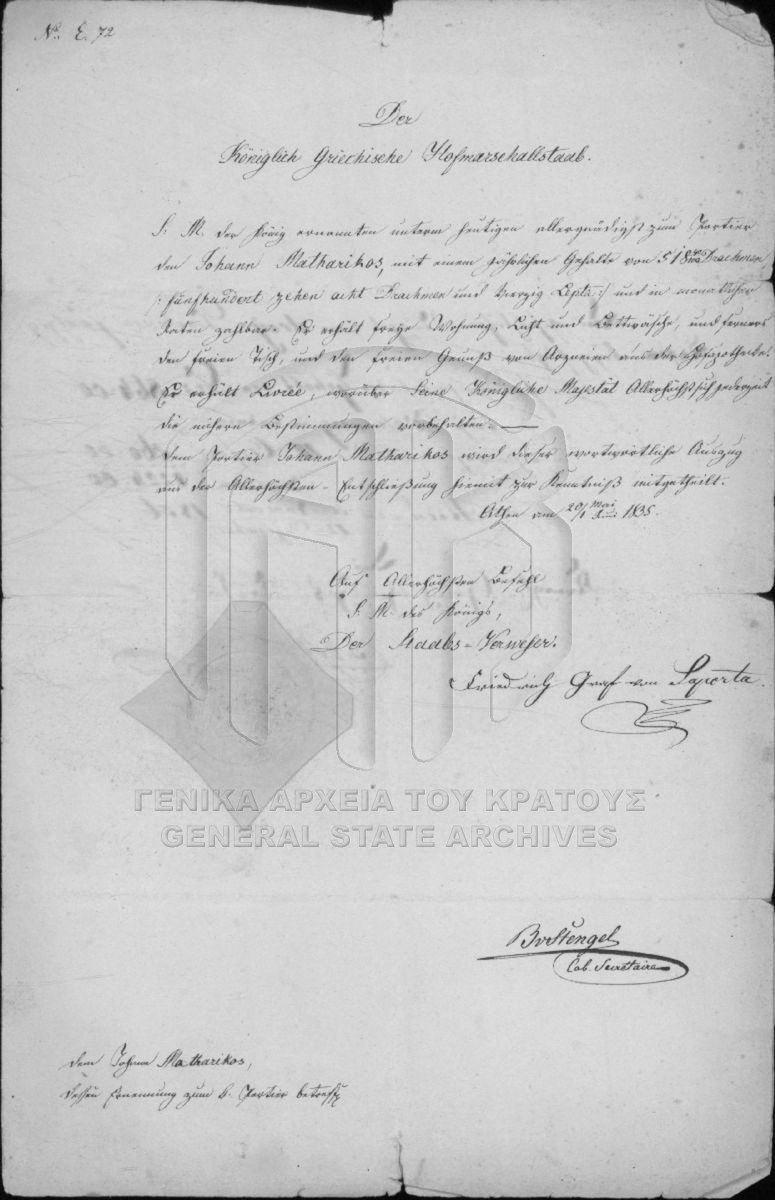 No. E. 72
Der
Königlich Griechische Hofmarschallstaab.
S. M. der König ernannten unterm heutigen allergnädigst zum Portier
den Johann Matharikos, mit einem jährlichen Gehalte von 518 40/100 Drachmen
/: fünfhundert zehen acht Drachmen und vierzig Lepta :/ und in monatlichen
Raten zahlbar. Er erhält freye Wohnung, Licht und Bettwäsche, und ferners
den freien Tisch, und den freien Genuß von Arzneien aus der Hofapotheke.
Er erhält Livrée, worüber Seine Königliche Majestät Allerhöchst sich jederzeit
die nähern Bestimmungen vorbehalten. —
Dem Portier Johann Matharikos wird dieser wortwörtliche Auszug
aus der Allerhöchsten-Entschließung hiemit zur Kenntniß mitgetheilt.
Athen am 20/1 Mai/Juni 1835.
Auf Allerhöchsten Befehl
S. M. des Königs,
Der Staabs-Verweser.
Friedrich Graf von Saporta
ΓΕΝΙΚΑ ΑΡΧΕΙΑ ΤΟΥ ΚΡΑΤΟΥΣ
GENERAL STATE ARCHIVES
BvStengel
Cab. Secretaire
dem Johann Matharikos,
dessen Ernennung zum k. Portier betreff.